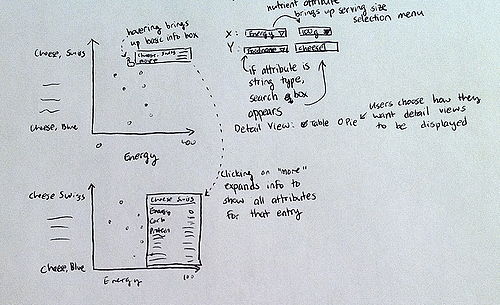 hovering brings
up basic info box
Cheese, Swiss
Cheese, Swiss
more
Cheese, Blue
0
Energy
100
nutrient attribute
brings up serving size
selection menu
X: Energy 100g
Y: foodname cheese
if attribute is
string type,
search box
appears
Detail View: Table Pie
users choose how they
want detail views
to be displayed
Clicking on "more"
expands info to
show all attributes
for that entry
Cheese Swiss
Cheese Swiss
Energy 0
Carb
Protein
Cheese, Blue
Energy
100